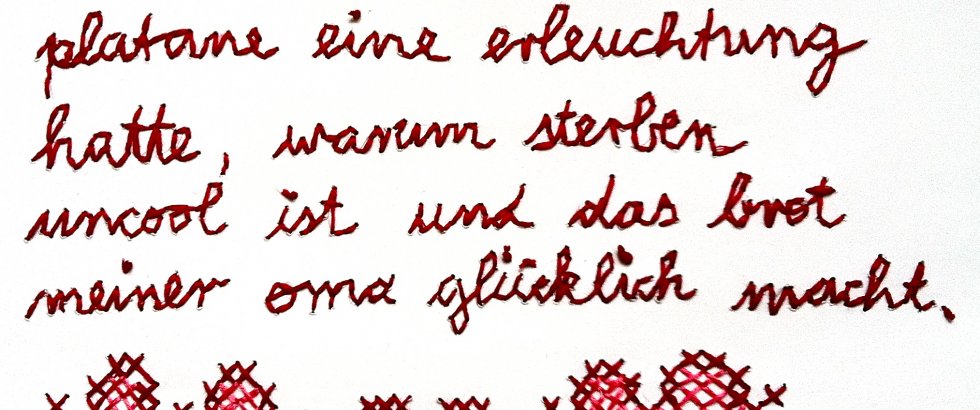 platane eine erleuchtung
hatte, warum sterben
uncool ist und das brot
meiner oma glücklich macht.